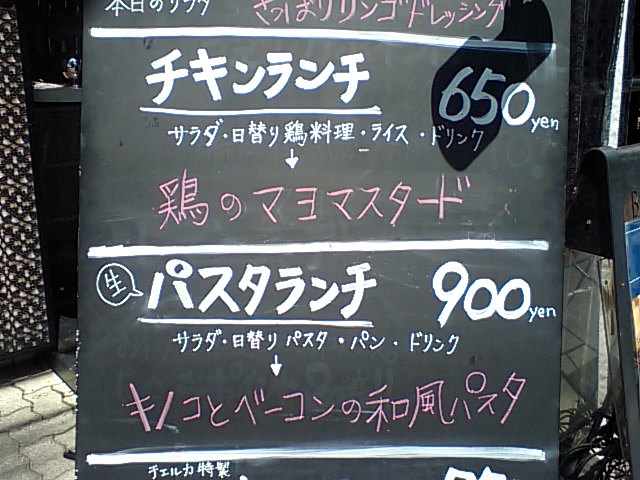 本日のサラダ
さっぱりリンゴドレッシング
チキンランチ 650yen
サラダ・日替り鶏料理・ライス・ドリンク
↓
鶏のマヨマスタード
生 パスタランチ 900yen
サラダ・日替りパスタ・パン・ドリンク
↓
キノコとベーコンの和風パスタ
チェルカ特製